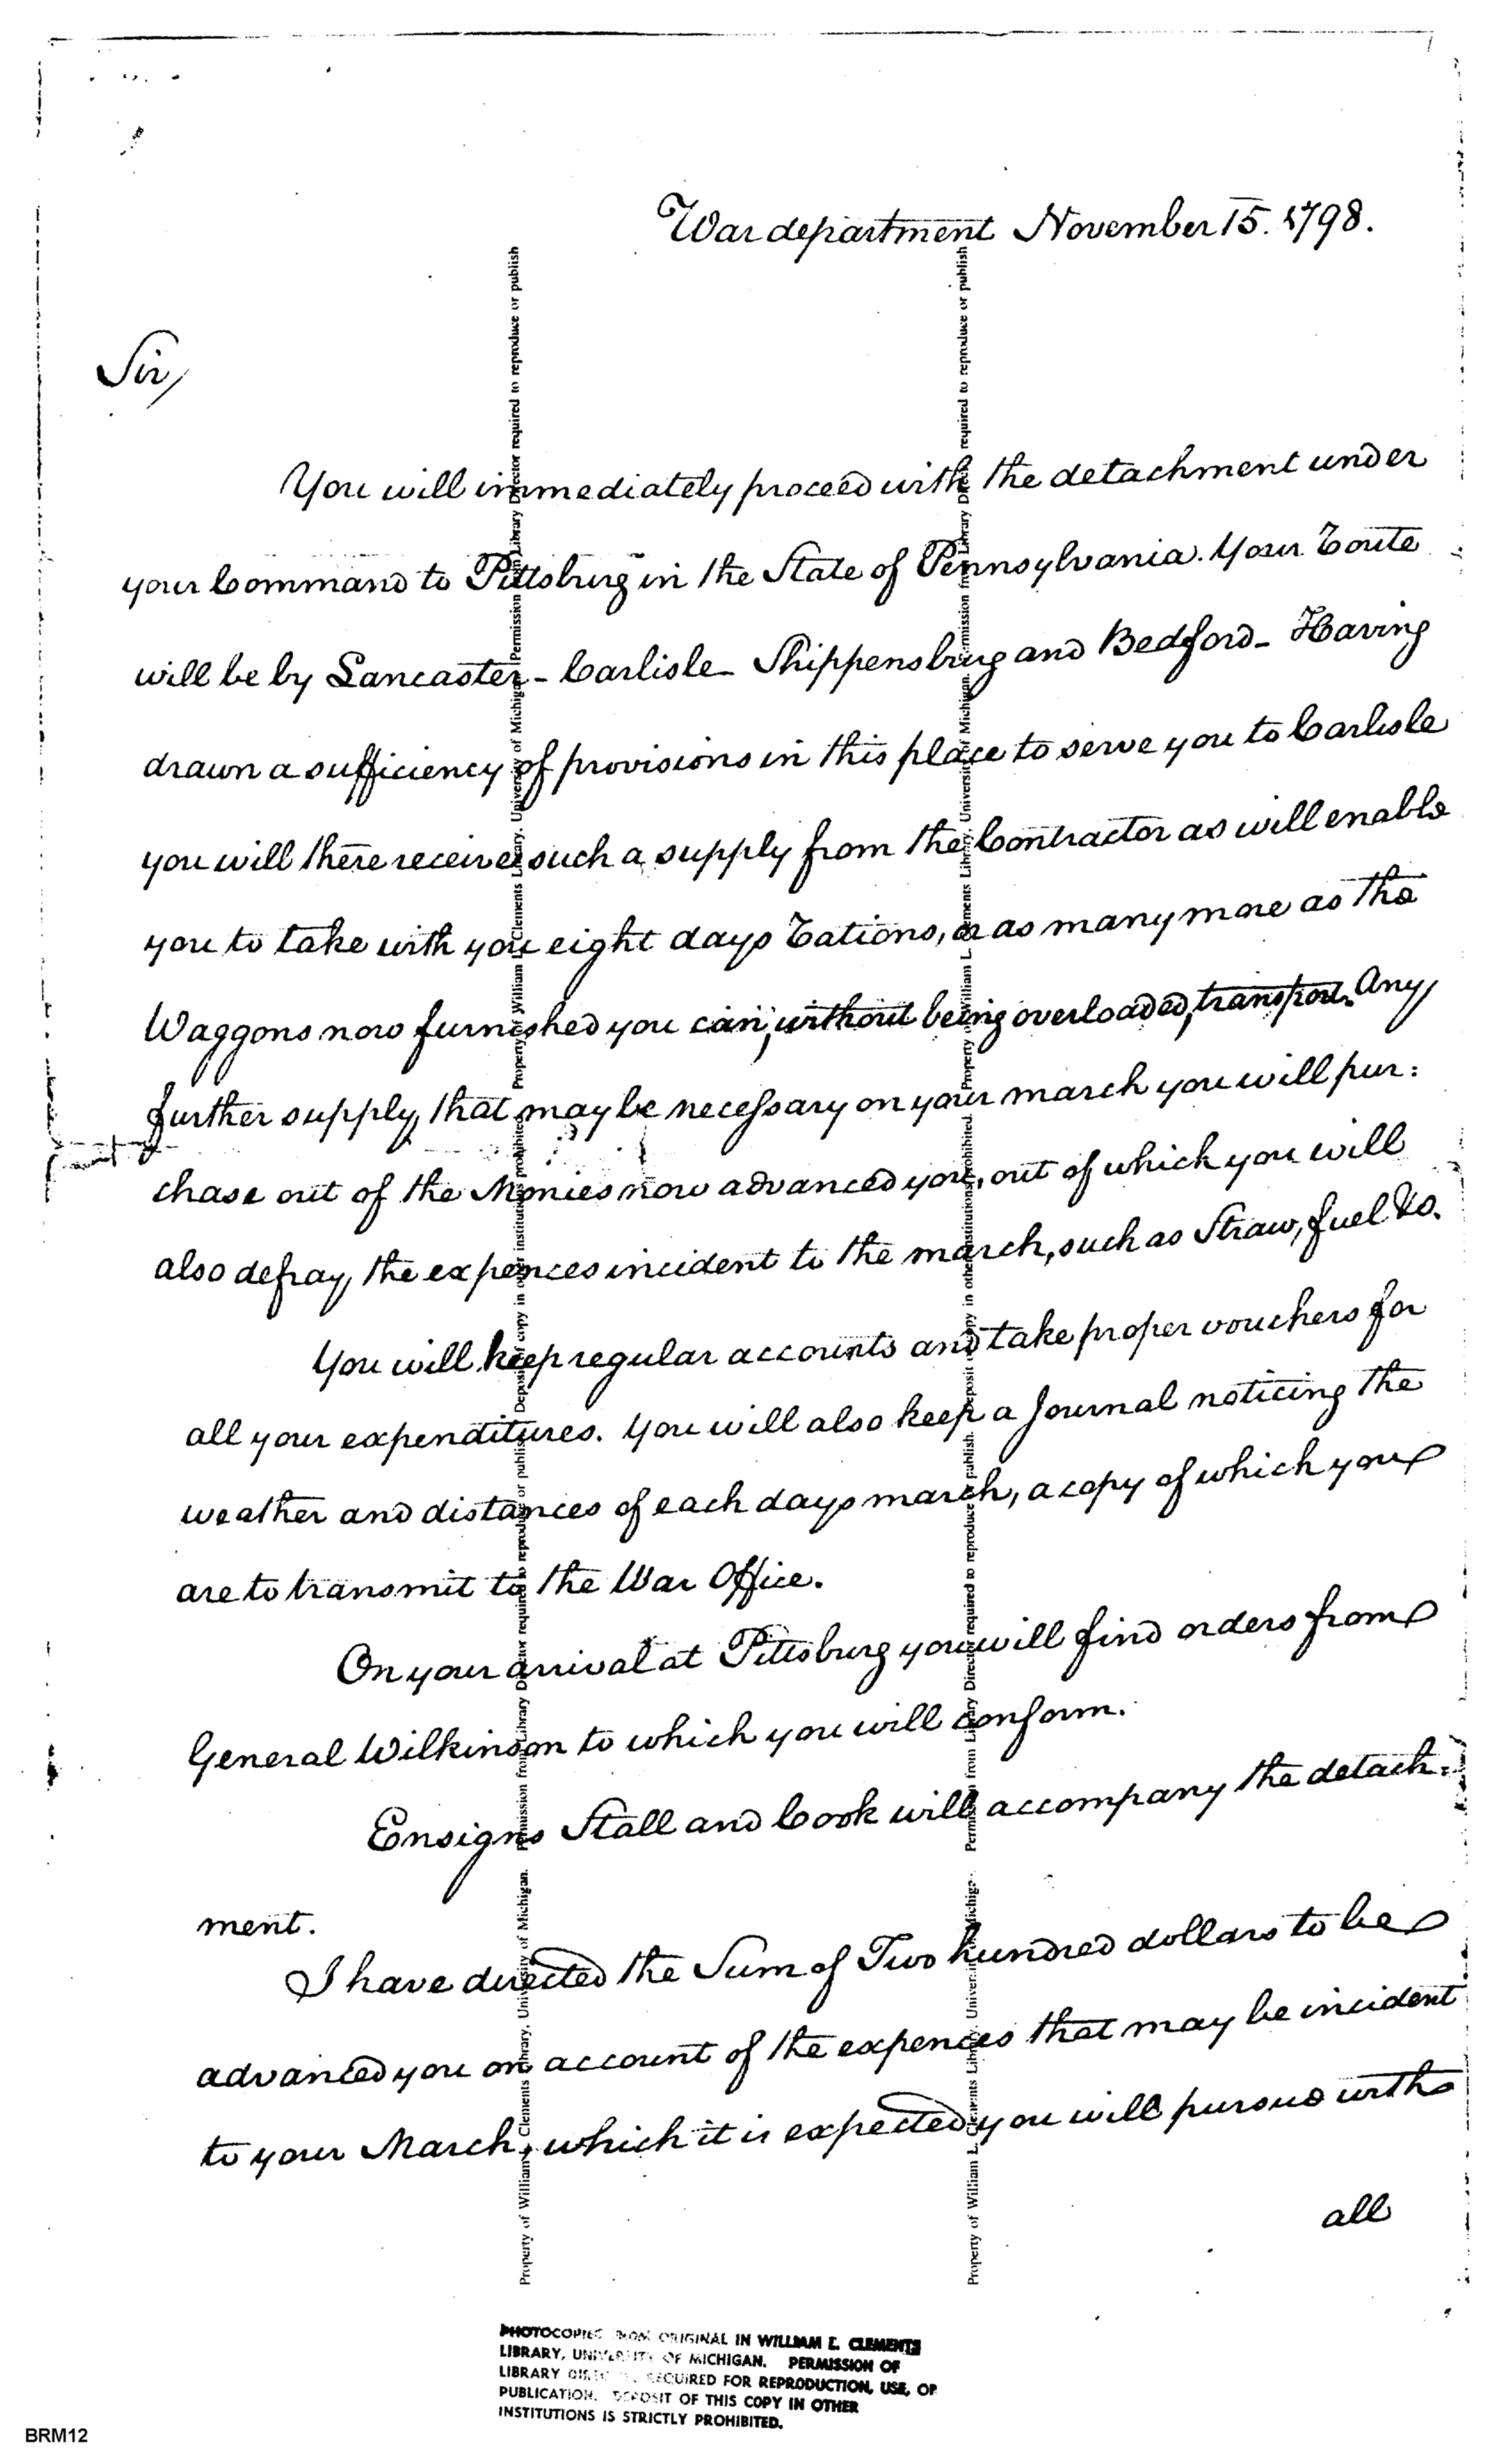 War department November 15. 1798.
Sir,
You will immediately proceed with the detachment under
your Command to Pittsburg in the State of Pennsylvania. Your Route
will be by Lancaster - Carlisle - Shippensburg and Bedford - Having
drawn a sufficiency of provisions in this place to serve you to Carlisle
you will there receive such a supply from the Contractor as will enable
you to take with you eight days Rations, or as many more as the
Waggons now furnished you can, without being overloaded, transport. Any
further supply, that may be necessary on your march you will pur:
chase out of the Monies now advanced you, out of which you will
also defray, the expences incident to the march, such as Straw, fuel &c.
You will keep regular accounts and take proper vouchers for
all your expenditures. You will also keep a Journal noticing the
weather and distances of each days march, a copy of which you
are to transmit to the War Office.
On your arrival at Pittsburg you will find orders from
General Wilkinson to which you will conform.
Ensigns Stall and Cook will accompany the detach:
ment.
I have directed the Sum of Two hundred dollars to be
advanced you on account of the expences that may be incident
to your March, which it is expected you will pursue with
all
Property of William L. Clements Library, University of Michigan. Permission from Library Director required to reproduce or publish. Deposit of copy in other institutions prohibited. Property of William L. Clements Library, University of Michigan. Permission from Library Director required to reproduce or publish
Property of William L. Clements Library, University of Michigan. Permission from Library Director required to reproduce or publish. Deposit of copy in other institutions prohibited. Property of William L. Clements Library, University of Michigan. Permission from Library Director required to reproduce or publish
PHOTOCOPIED FROM ORIGINAL IN WILLIAM L. CLEMENTS
LIBRARY, UNIVERSITY OF MICHIGAN. PERMISSION OF
LIBRARY DIRECTOR REQUIRED FOR REPRODUCTION, USE, OR
PUBLICATION. DEPOSIT OF THIS COPY IN OTHER
INSTITUTIONS IS STRICTLY PROHIBITED.
BRM12